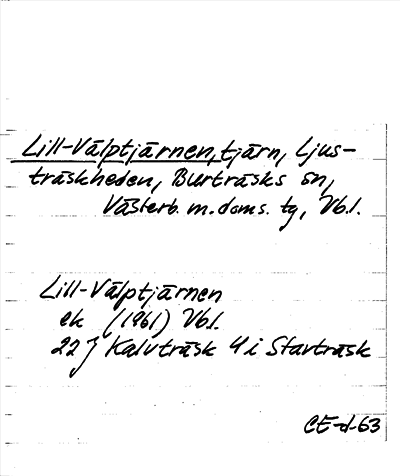 Lill-Välptjärnen, tjärn, Ljus-
träskheden, Burträsks sn,
Västerb. m. doms. tg, Vb.l.
Lill-Välptjärnen
ek (1961) Vb.l.
22 J Kalvträsk 4 i Starträsk
CE-d-63